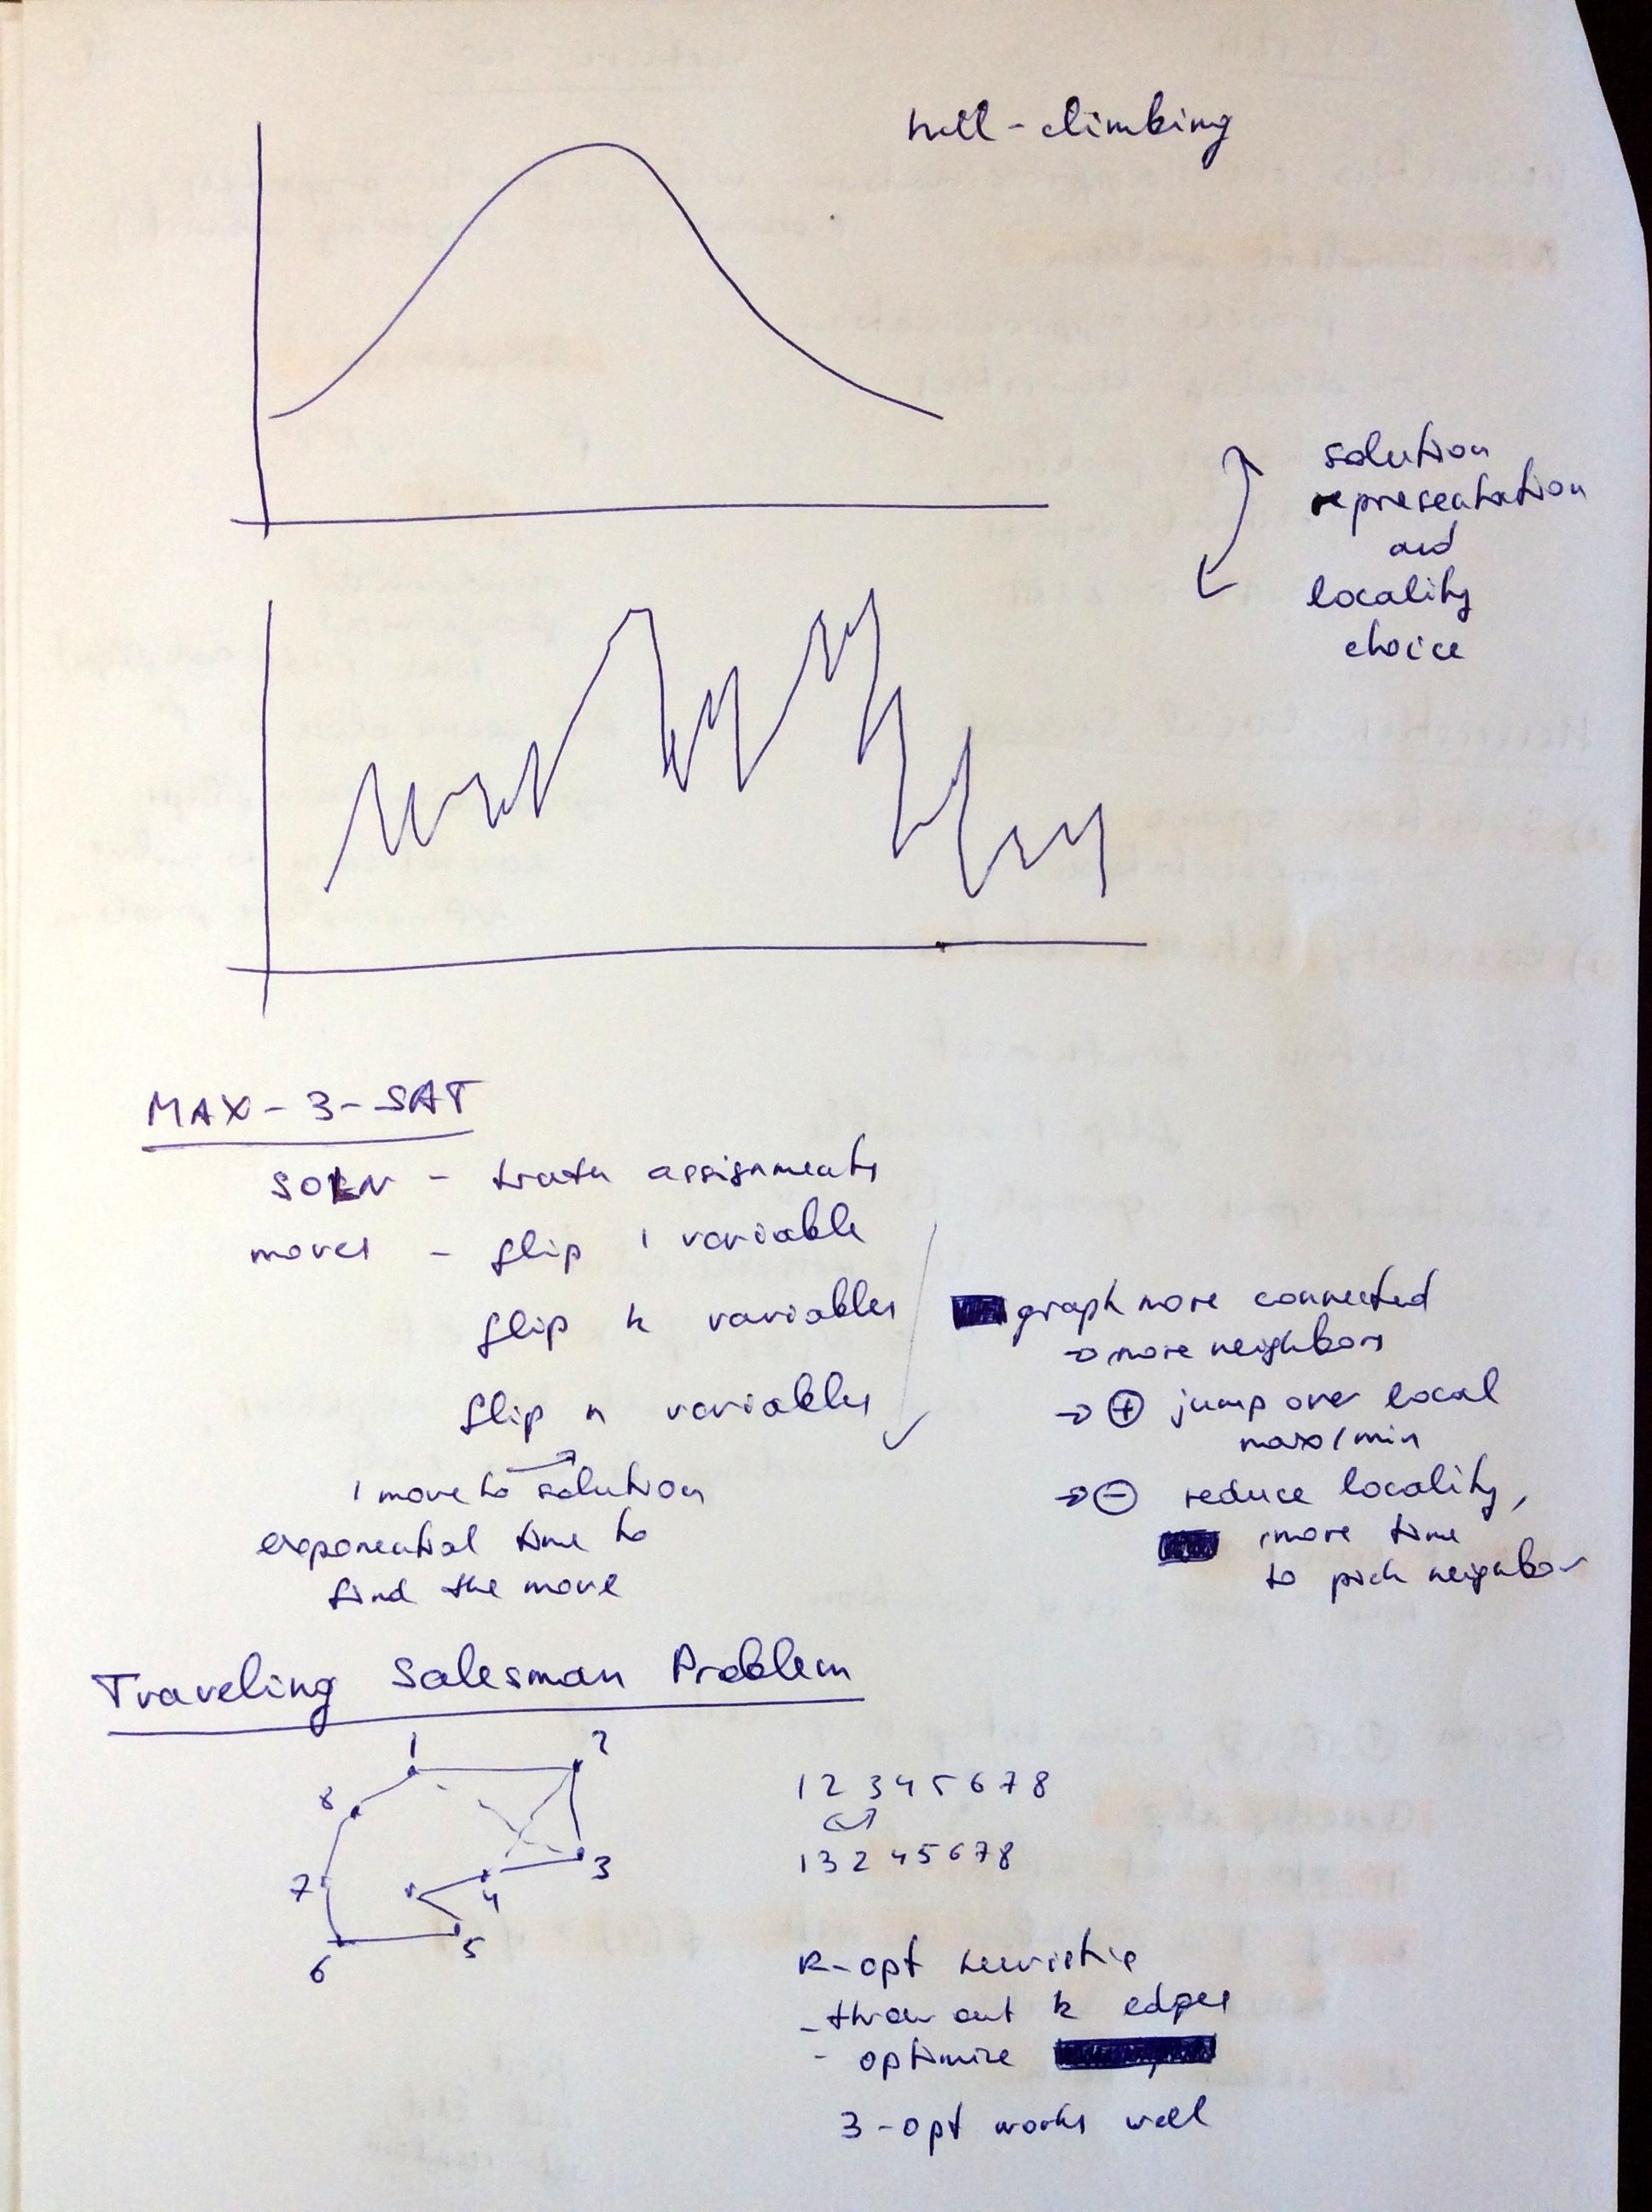 hill-climbing
solution
representation
and
locality
choice
MAX-3-SAT
SOLN - truth assignments
moves - flip 1 variable
flip k variables
flip n variables
1 move to solution
exponential time to
find the move
graph more connected
→ more neighbors
→ ⊕ jump over local
max/min
→ ⊖ reduce locality,
more time
to pick neighbor
Traveling Salesman Problem
1 2
8
3
7 4
5
6
1 2 3 4 5 6 7 8
1 3 2 4 5 6 7 8
k-opt heuristic
- throw out k edges
- optimize
3-opt works well